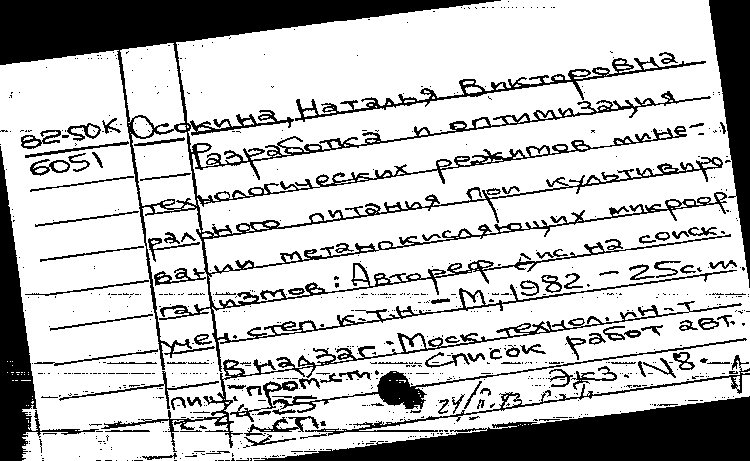 82-50К Осокина, Наталья Викторовна
6051 Разработка и оптимизация
технологических режимов мине-
рального питания при культивиро-
вании метанокисляющих микроор-
ганизмов: Автореф. дис. на соиск.
учен. степ. к.т.н. - М., 1982. - 25с.
В надзаг.: Моск. технол. ин-т
пищ. пром-сти. Список работ авт.:
с. 24-25. Экз. N8.
сп. 24/II.83